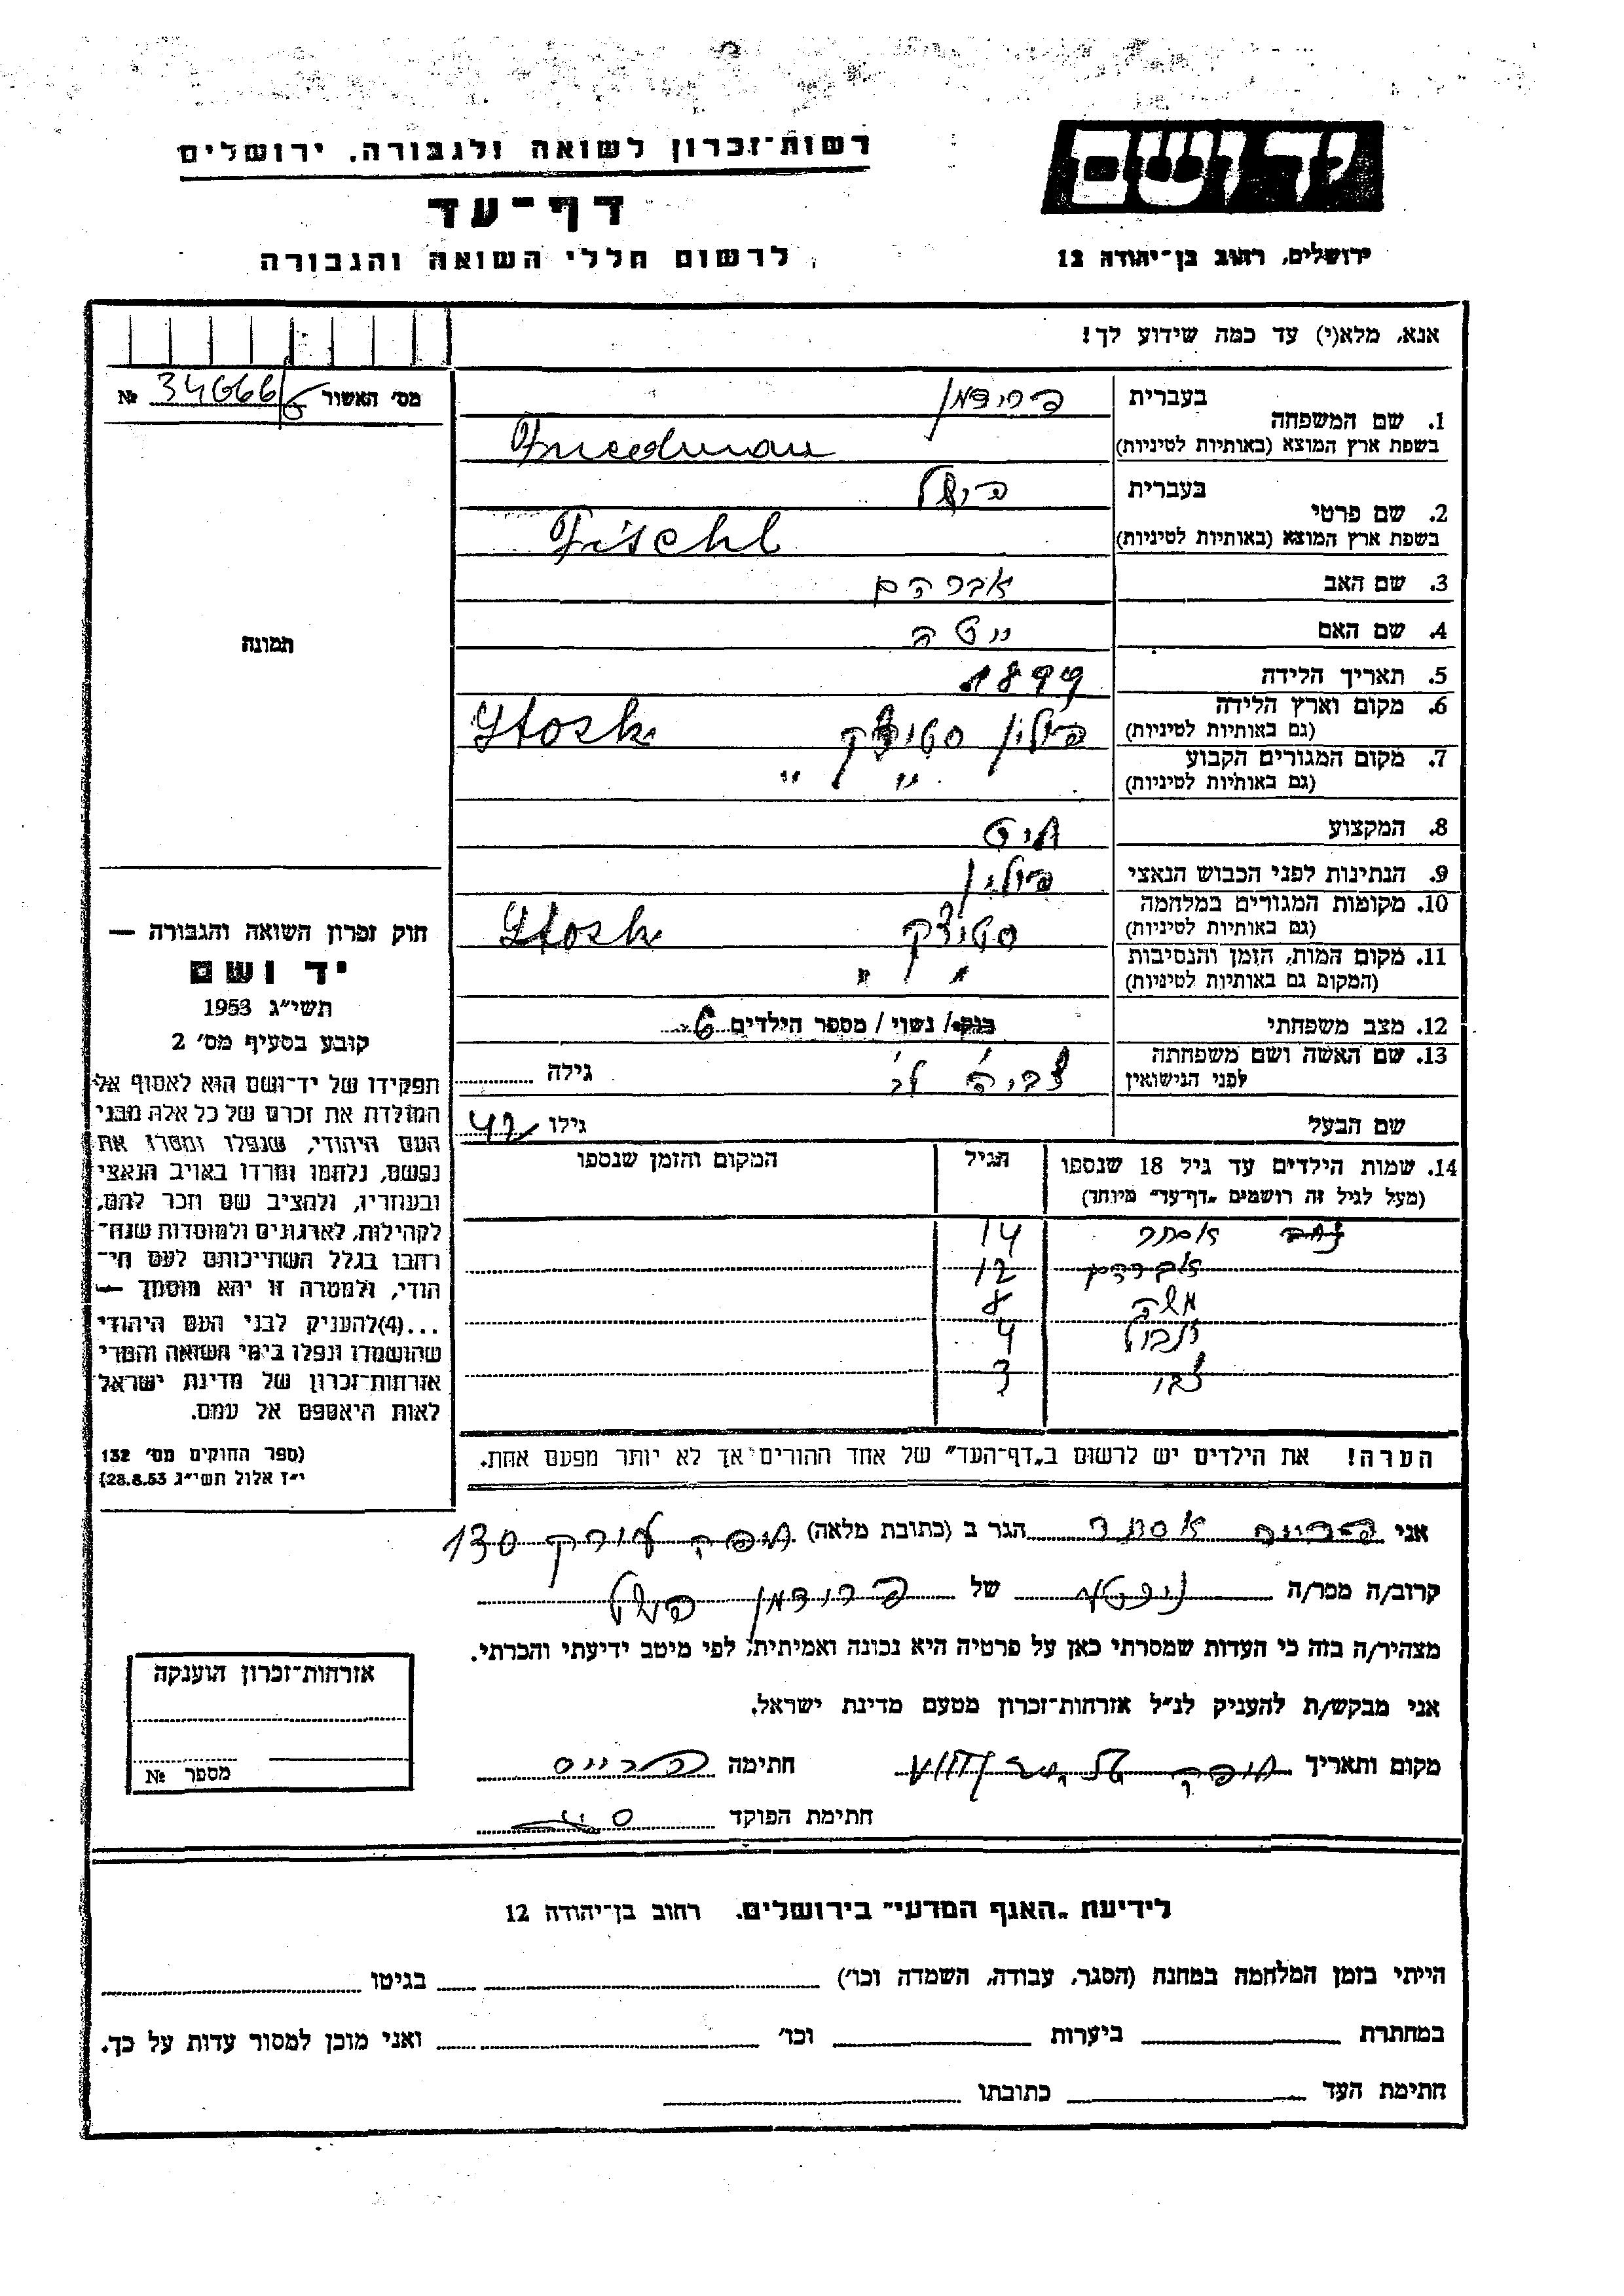 רשות־זכרון לשואה ולגבורה, ירושלים
יד ושם
דף־עד
לרשום חללי השואה והגבורה
ירושלים, רחוב בן־יהודה 12
אנא, מלא(י) עד כמה שידוע לך!
מס׳ האשור № 34666/6
1. שם המשפחה
בעברית פרידמן
בשפת ארץ המוצא (באותיות לטיניות) Friedman
2. שם פרטי
בעברית פישל
בשפת ארץ המוצא (באותיות לטיניות) Fischl
3. שם האב אברהם
4. שם האם יטה
5. תאריך הלידה 1899
6. מקום וארץ הלידה (גם באותיות לטיניות) פולין סטוצק Stosk
7. מקום המגורים הקבוע (גם באותיות לטיניות) " "
8. המקצוע חיט
9. הנתינות לפני הכבוש הנאצי פולין
10. מקומות המגורים במלחמה (גם באותיות לטיניות) סטוצק Stosk
11. מקום המות, הזמן והנסיבות (המקום גם באותיות לטיניות) " "
12. מצב משפחתי רווק / נשוי / מספר הילדים 6
13. שם האשה ושם משפחתה לפני הנישואין גילה
שם הבעל גילו 42
14. שמות הילדים עד גיל 18 שנספו (מעל לגיל זה רושמים „דף־עד״ מיוחד) הגיל המקום והזמן שנספו
אסתר 14
אברהם 12
משה 8
4
צבי 3
הערה! את הילדים יש לרשום ב„דף־העד״ של אחד ההורים אך לא יותר מפעם אחת.
תמונה
חוק זכרון השואה והגבורה —
יד ושם
תשי״ג 1953
קובע בסעיף מס׳ 2
תפקידו של יד־ושם הוא לאסוף אל
המולדת את זכרם של כל אלה מבני
העם היהודי, שנפלו ומסרו את
נפשם, נלחמו ומרדו באויב הנאצי
ובעוזריו, ולהציב שם וזכר להם,
לקהילות, לארגונים ולמוסדות שנח־
רבו בגלל השתייכותם לעם הי־
הודי, ולמטרה זו יהא מוסמך —
...(4)להעניק לבני העם היהודי
שהושמדו ונפלו בימי השואה והמרי
אזרחות־זכרון של מדינת ישראל
לאות היאספם אל עמם.
(ספר החוקים מס׳ 132
י״ז אלול תשי״ג 28.8.53)
אני אסתר הגר ב (כתובת מלאה) חיפה 130
קרוב/ה מכר/ה של פרידמן פישל
מצהיר/ה בזה כי העדות שמסרתי כאן על פרטיה היא נכונה ואמיתית, לפי מיטב ידיעתי והכרתי.
אני מבקש/ת להעניק לנ״ל אזרחות־זכרון מטעם מדינת ישראל.
מקום ותאריך חיפה חתימה
חתימת הפוקד
אזרחות־זכרון הוענקה
מספר №
לידיעת „האגף המדעי״ בירושלים, רחוב בן־יהודה 12
הייתי בזמן המלחמה במחנה (הסגר, עבודה, השמדה וכו׳) בגיטו
במחתרת ביערות וכו׳ ואני מוכן למסור עדות על כך.
חתימת העד כתובתו